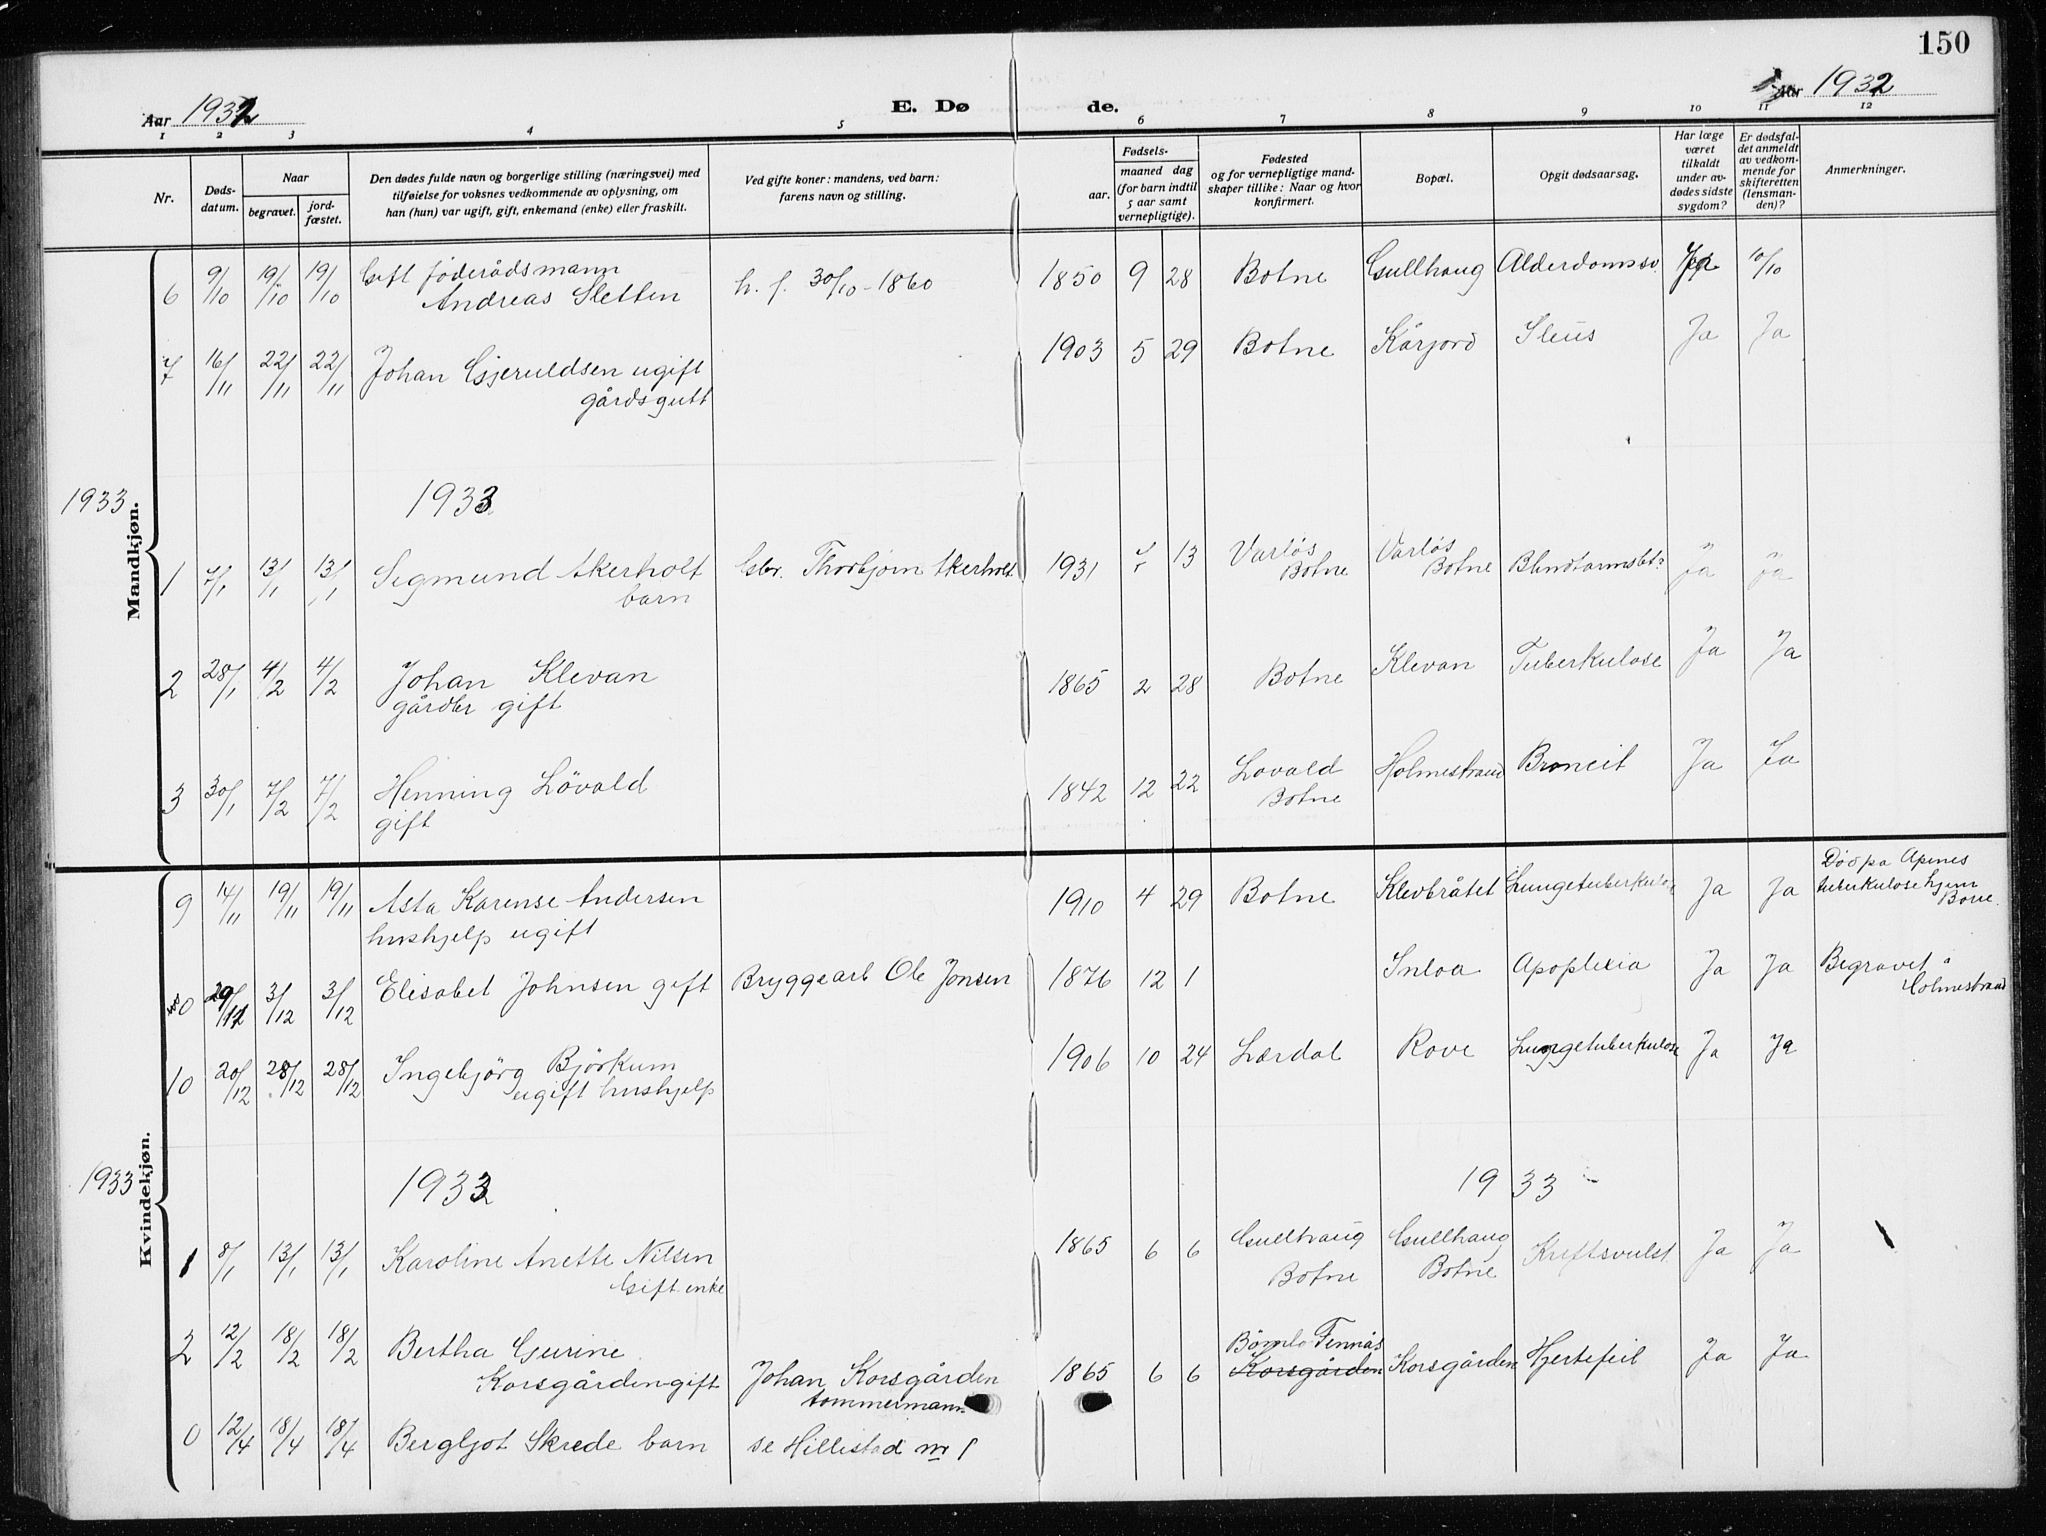 150
Aar 1932
E. Dø
de.
Aar 1932
1 2 3 4 5 6 7 8 9 10 11 12
Nr.
Døds-
datum.
Naar
begravet.
jord-
fæstet.
Den dødes fulde navn og borgerlige stilling (næringsvei) med
tilføielse for voksnes vedkommende av oplysning, om
han (hun) var ugift, gift, enkemand (enke) eller fraskilt.
Ved gifte koner: mandens, ved barn:
farens navn og stilling.
Fødsels-
aar.
maaned dag
(for barn indtil
5 aar samt
vernepligtige).
Fødested
og for vernepligtige mand-
skaper tillike: Naar og hvor
konfirmert.
Bopæl.
Opgit dødsaarsag.
Har læge
været
tilkaldt
under av-
dødes sidste
sygdom?
Er dødsfal-
det anmeldt
av vedkom-
mende for
skifteretten
(lensman-
den)?
Anmerkninger.
Mandkjøn.
6 9/10 19/10 19/10 Gift föderådsmann
Andreas Sletten h. f. 30/10-1860 1850 9 28 Botne Gullhaug Alderdomssv. 10/10
7 16/11 22/11 22/11 Johan Gjeruldsen ugift
gårdsgutt 1903 5 29 Botne Kårjord Ileus Ja Ja
1933 1933
1 7/1 13/1 13/1 Sigmund Akerholt
barn Gbr. Thorbjørn Akerholt 1931 13 Varløs
Botne Varløs
Botne Blindtarmsbt. Ja Ja
2 28/1 4/2 4/2 Johan Klevan
gårdbr gift 1865 2 28 Botne Klevan Tuberkulose Ja Ja
3 30/1 7/2 7/2 Henning Lövald
gift 1842 12 22 Lovald
Botne Holmestrand Broncit Ja Ja
Kvindekjøn.
9 14/11 19/11 19/11 Asta Karense Andersen
hushjelp ugift 1910 4 29 Botne Klevbråtet Lungetuberkulose Ja Ja Död pa Apenes
tuberkulosehjem
Borre.
0 29/11 3/12 3/12 Elisabet Johnsen gift Bryggearb Ole Jonsen 1876 12 1 Snloa Apoplexia Ja Ja Begravet i
Holmestrand
10 20/12 28/12 28/12 Ingebjörg Björkum
ugift hushjelp 1906 10 24 Lærdal Rove Lungetuberkulose Ja Ja
1933 1933 1933
1 8/1 13/1 13/1 Karoline Anette Nilsen
Gift enke 1865 6 6 Gullhaug
Botne Gullhaug
Botne Kreftsvulst Ja Ja
2 12/2 18/2 18/2 Bertha Gurine
Korsgården gift Johan Korsgården
tommermann 1865 6 6 Bömlo Fennås
Korsgården Korsgården Hjertefeil Ja Ja
0 12/4 18/4 18/4 Bergljot Skrede barn se Hillestad nr 1